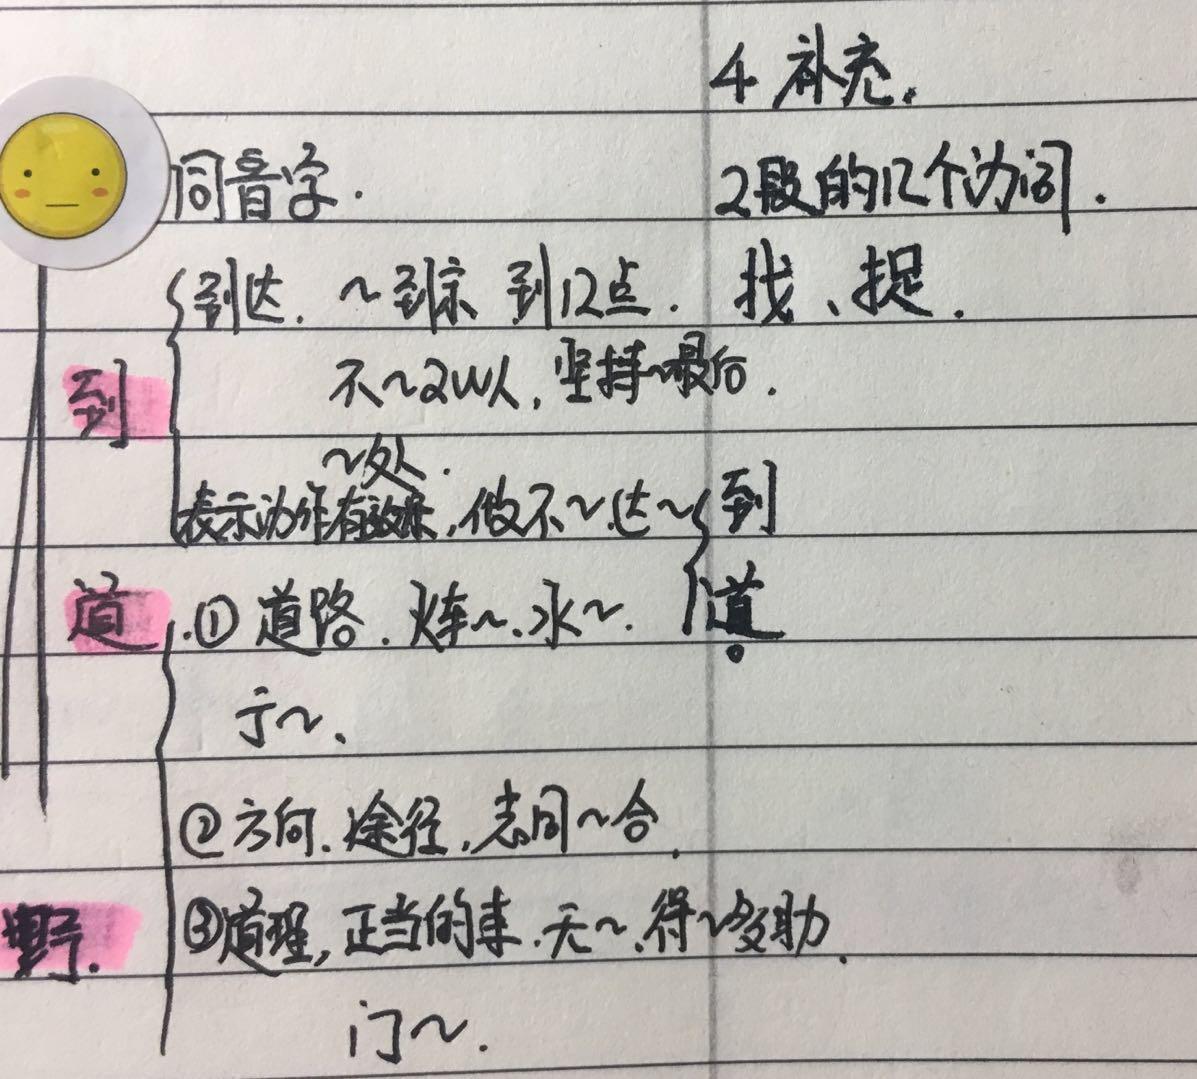 4 补充.
同音字.
2段的几个动词.
到达. ~到京 到12点. 找、捉.
不~2W人, 坚持~最后.
到
~处.
表示动作有效果, 做不~.达~ 到
道 .① 道路. 火车~、水~. 道
于~、
② 方向. 途径, 志同~合.
野. ③道理, 正当的事. 无~、得~多助.
门~.